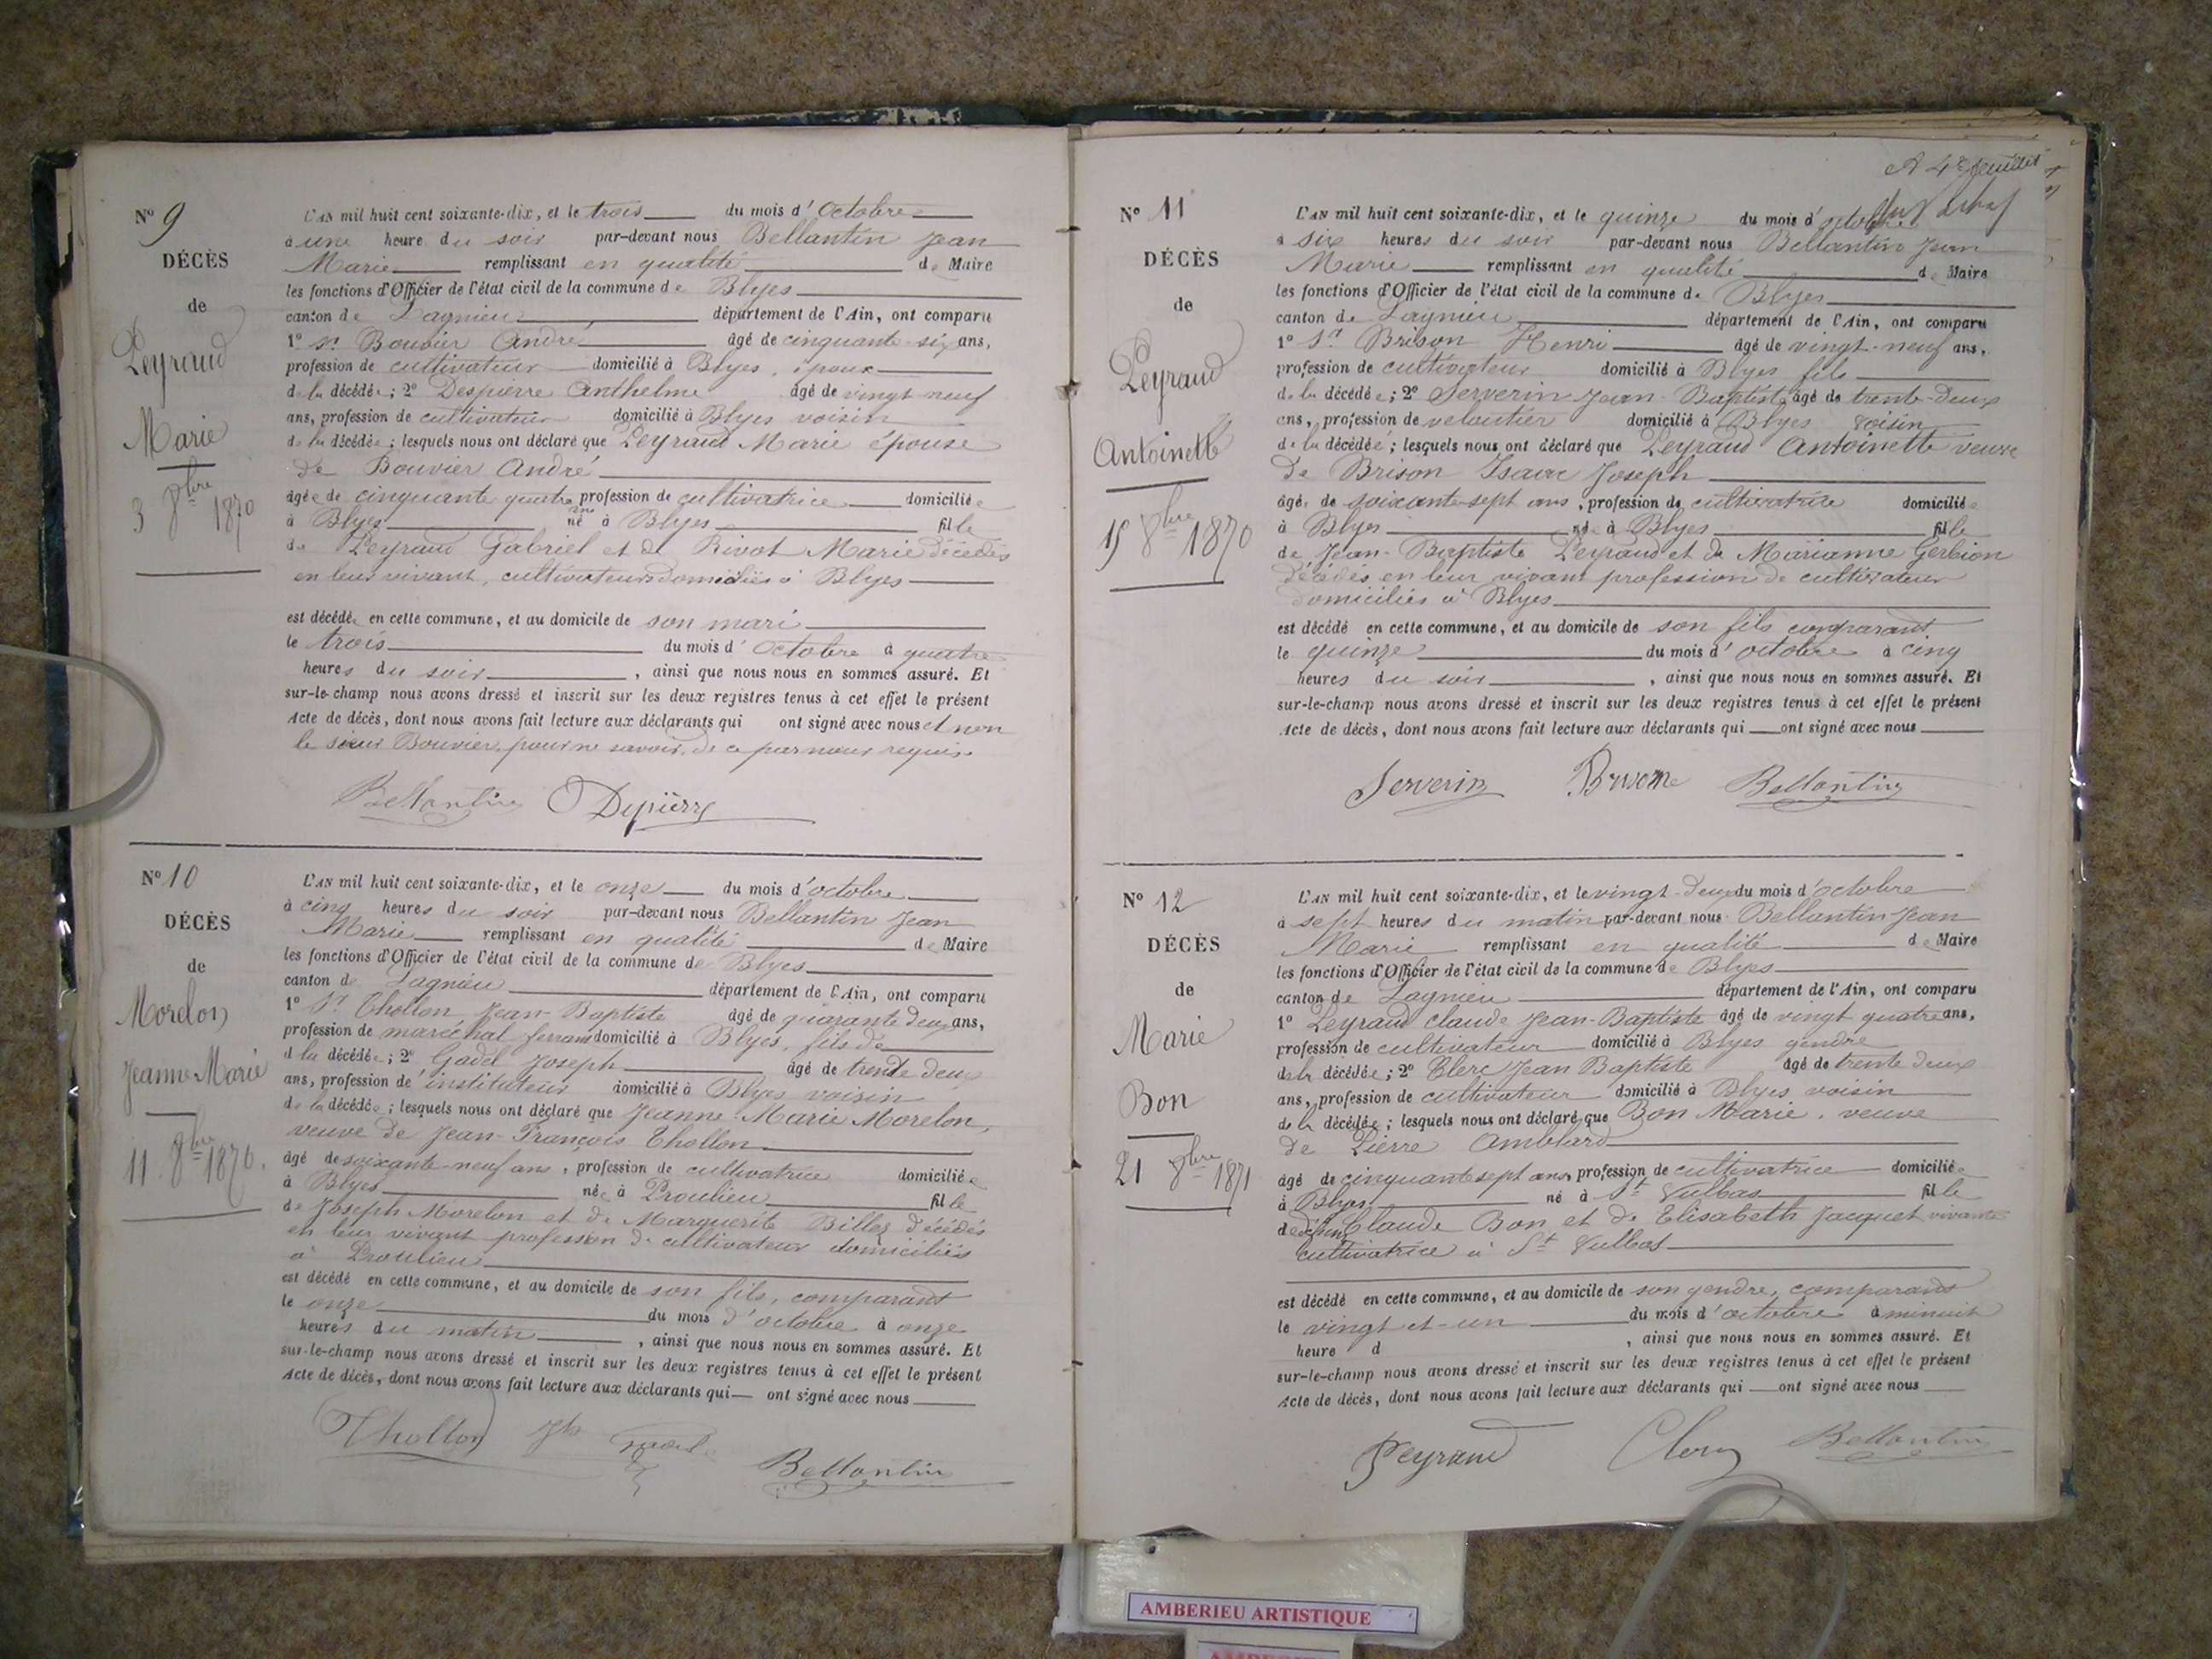 N° 9
DÉCÈS
de
Peyraud
Marie
3 8bre 1870
L'AN mil huit cent soixante-dix, et le trois du mois d'Octobre
à une heure du soir par-devant nous Bellantin Jean
Marie remplissant en qualité de Maire
les fonctions d'Officier de l'état civil de la commune de Blyes
canton de Lagnieu département de l'Ain, ont comparu
1° Sr Bouvier André âgé de cinquante-six ans,
profession de cultivateur domicilié à Blyes, époux
de la décédée; 2° Despierre Anthelme âgé de vingt-neuf
ans, profession de cultivateur domicilié à Blyes voisin
de la décédée; lesquels nous ont déclaré que Peyraud Marie épouse
de Bouvier André
âgée de cinquante quatre ans profession de cultivatrice domiciliée
à Blyes né à Blyes fille
de Peyraud Gabriel et de Rivot Marie décédés
en leur vivant, cultivateurs domiciliés à Blyes
est décédée en cette commune, et au domicile de son mari
le trois du mois d'Octobre à quatre
heures du soir, ainsi que nous nous en sommes assuré. Et
sur-le-champ nous avons dressé et inscrit sur les deux registres tenus à cet effet le présent
Acte de décès, dont nous avons fait lecture aux déclarants qui ont signé avec nous et non
le sieur Bouvier, pour ne savoir, de ce par nous requis.
Bellantin Depierre
N° 10
DÉCÈS
de
Morelon
Jeanne Marie
11 8bre 1870.
L'AN mil huit cent soixante-dix, et le onze du mois d'octobre
à cinq heures du soir par-devant nous Bellantin Jean
Marie remplissant en qualité de Maire
les fonctions d'Officier de l'état civil de la commune de Blyes
canton de Lagnieu département de l'Ain, ont comparu
1° Sr Thollon Jean-Baptiste âgé de quarante deux ans,
profession de maréchal ferrant domicilié à Blyes, fils de
d la décédée; 2° Gadel Joseph âgé de trente deux
ans, profession de instituteur domicilié à Blyes voisin
de la décédée; lesquels nous ont déclaré que Jeanne Marie Morelon,
veuve de Jean-François Thollon
âgé de soixante-neuf ans, profession de cultivatrice domiciliée
à Blyes née à Proulieu fille
de Joseph Morelon et de Marguerite Billez décédés
en leur vivant profession de cultivateur domiciliés
à Proulieu
est décédé en cette commune, et au domicile de son fils, comparant
le onze du mois d'octobre à onze
heures du matin, ainsi que nous nous en sommes assuré. Et
sur-le-champ nous avons dressé et inscrit sur les deux registres tenus à cet effet le présent
Acte de décès, dont nous avons fait lecture aux déclarants qui ont signé avec nous
Thollon Jh Gadel Bellantin
A 4e feuillet
N° 11
DÉCÈS
de
Peyraud
Antoinette
15 8bre 1870
L'AN mil huit cent soixante-dix, et le quinze du mois d'octobre
à six heures du soir par-devant nous Bellantin Jean
Marie remplissant en qualité de Maire
les fonctions d'Officier de l'état civil de la commune de Blyes
canton de Lagnieu département de l'Ain, ont comparu
1° Sr Brison Henri âgé de vingt-neuf ans,
profession de cultivateur domicilié à Blyes fils
de la décédée; 2° Serverin Jean-Baptiste âgé de trente-deux
ans, profession de veloutier domicilié à Blyes voisin
de la décédée; lesquels nous ont déclaré que Peyraud Antoinette veuve
de Brison Isaac Joseph
âgée de soixante-sept ans, profession de cultivatrice domiciliée
à Blyes née à Blyes fille
de Jean-Baptiste Peyraud et de Marianne Gerbion
décédés en leur vivant profession de cultivateur
domiciliés à Blyes
est décédé en cette commune, et au domicile de son fils comparant
le quinze du mois d'octobre à cinq
heures du soir, ainsi que nous nous en sommes assuré. Et
sur-le-champ nous avons dressé et inscrit sur les deux registres tenus à cet effet le présent
Acte de décès, dont nous avons fait lecture aux déclarants qui ont signé avec nous
Serverin Bellantin
N° 12
DÉCÈS
de
Marie
Bon
21 8bre 1871
L'AN mil huit cent soixante-dix, et le vingt-deux du mois d'Octobre
à sept heures du matin par-devant nous Bellantin Jean
Marie remplissant en qualité de Maire
les fonctions d'Officier de l'état civil de la commune de Blyes
canton de Lagnieu département de l'Ain, ont comparu
1° Peyraud Claude Jean-Baptiste âgé de vingt quatre ans,
profession de cultivateur domicilié à Blyes gendre
de la décédée; 2° Clerc Jean Baptiste âgé de trente deux
ans, profession de cultivateur domicilié à Blyes voisin
de la décédée; lesquels nous ont déclaré que Bon Marie, veuve
de Pierre Amblard
âgé de cinquante sept ans, profession de cultivatrice domiciliée
à Blyes né à St Vulbas fille
de défunt Claude Bon et de Elisabeth Jacquet vivante
cultivatrice à St Vulbas
est décédé en cette commune, et au domicile de son gendre, comparant
le vingt et un du mois d'octobre à minuit
heure d, ainsi que nous nous en sommes assuré. Et
sur-le-champ nous avons dressé et inscrit sur les deux registres tenus à cet effet le présent
Acte de décès, dont nous avons fait lecture aux déclarants qui ont signé avec nous
Peyraud Clerc Bellantin
AMBERIEU ARTISTIQUE